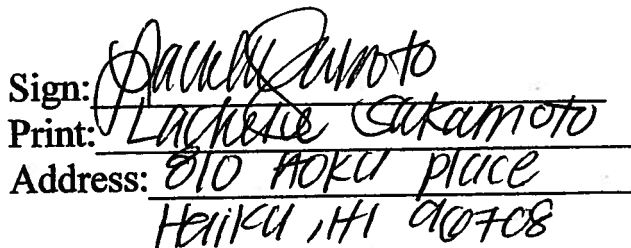 Sign:
Print: Sakamoto
Address: 810 HOKU place
Haiku, HI 96708